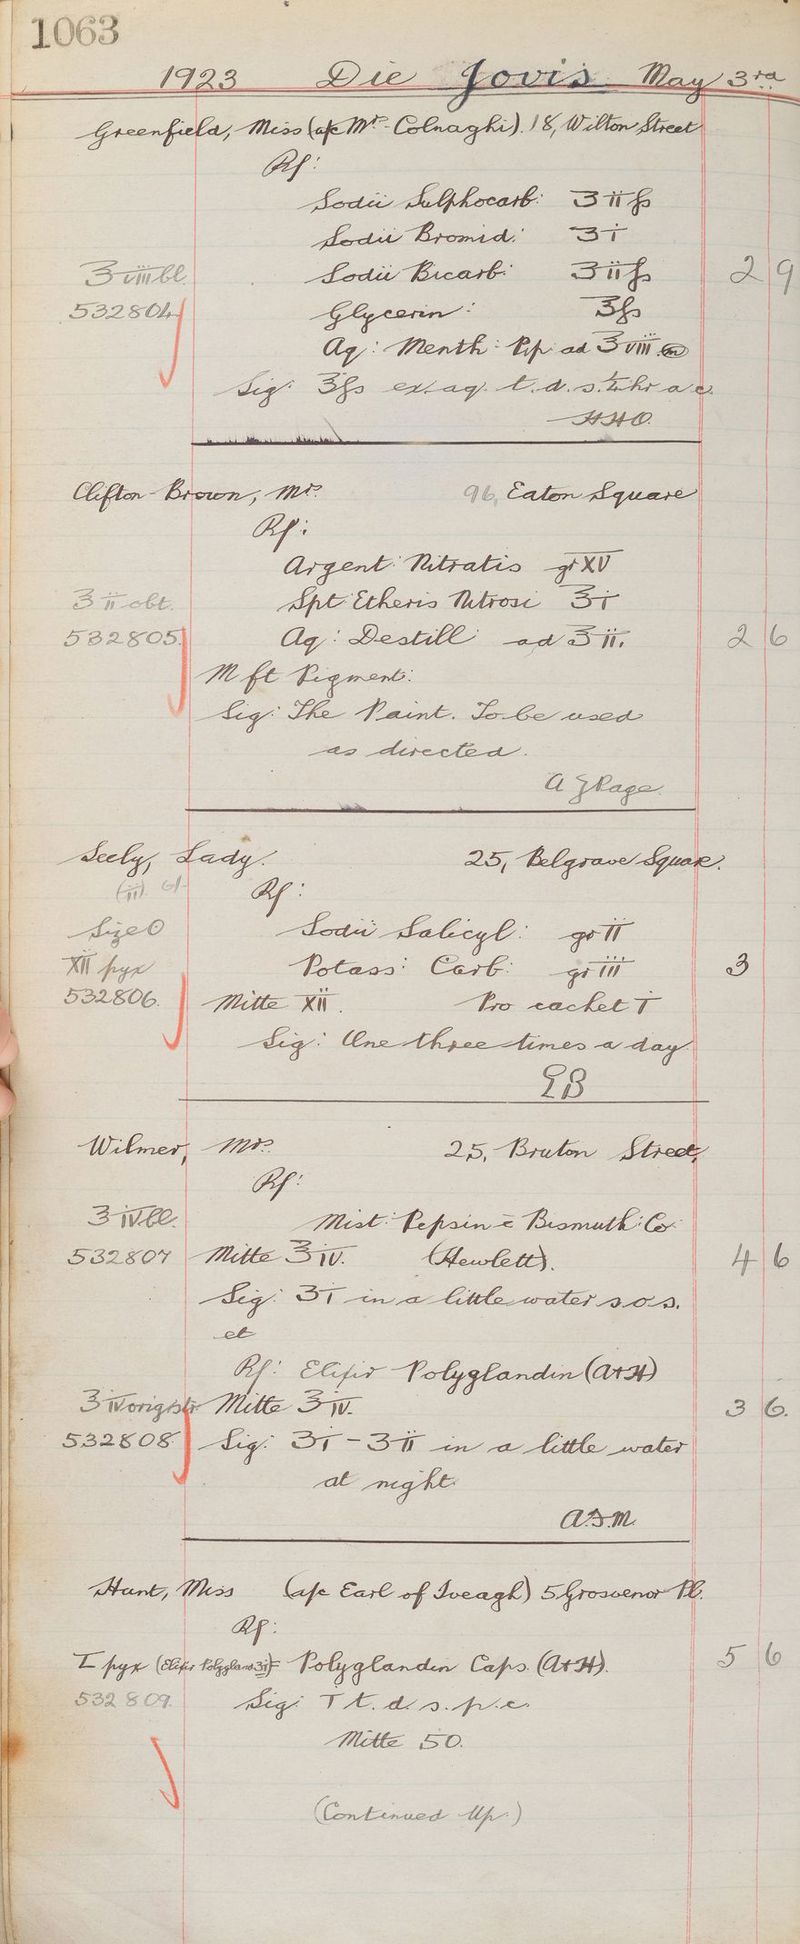 1063
1923 Die Jovis May 3rd
Greenfield, Miss (a/c Mrs Colnaghi). 18, Wilton Street
Rx:
Sodii Sulphocarb: ʒiifs
Sodii Bromid: ʒi
℥viii bl. Sodii Bicarb: ʒiifs 2 9
532804 Glycerin: ℥fs
Aq: Menth: Pip ad ℥viii. m
Sig: ℥fs ex. aq. t. d. s. ¼ hr a c.
HHO.
Clifton-Brown, Mrs. 96, Eaton Square
Rx:
Argent: Nitratis gr XV
℥ii obt. Spt: Etheris Nitrosi ʒi
532805. Aq: Destill: ad ℥ii. 2 6
M ft Pigment:
Sig: The Paint. To be used
as directed.
A G Page.
Seely, Lady. 25, Belgrave Square.
(ii). 6/- Rx:
Size 0 Sodii Salicyl: gr ii
XII pyx Potass: Carb: gr iii 3
532806. Mitte XII. Pro cachet i
Sig: One three times a day.
EB
Wilmer, Mrs. 25, Bruton Street,
Rx:
℥iv bl. Mist: Pepsin c̄ Bismuth: Co
532807 Mitte ℥iv. (Hewlett). 4 6
Sig: ʒi in a little water s.o.s.
et
Rx: Elixir Polyglandin (A+H)
℥iv orig str Mitte ℥iv. 3 6.
532808 Sig: ʒi - ʒii in a little water
at night.
A.D.M.
Hunt, Miss (a/c Earl of Iveagh) 5 Grosvenor Pl.
Rx:
I pyx (Elixir Polygland ʒi)= Polyglandin Caps. (A+H). 5 6
532809. Sig: i t. d. s. p. c.
Mitte 50.
(Continued Up.)